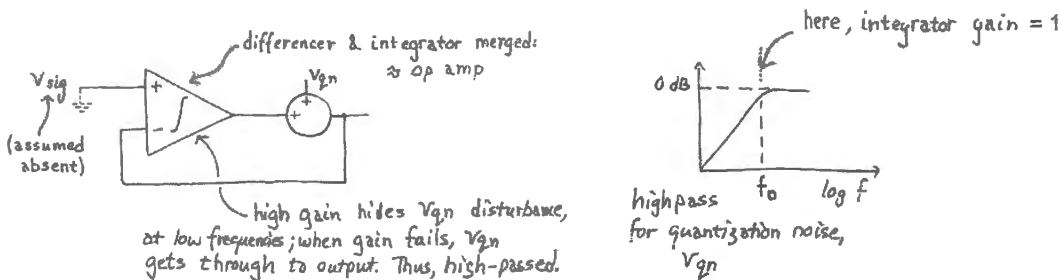 differencer & integrator merged:
≈ op amp
Vsig
(assumed
absent)
+
-
∫
Vqn
+
+
high gain hides Vqn disturbance,
at low frequencies; when gain fails, Vqn
gets through to output. Thus, high-passed.
here, integrator gain = 1
0 dB
f0
log f
highpass
for quantization noise,
Vqn